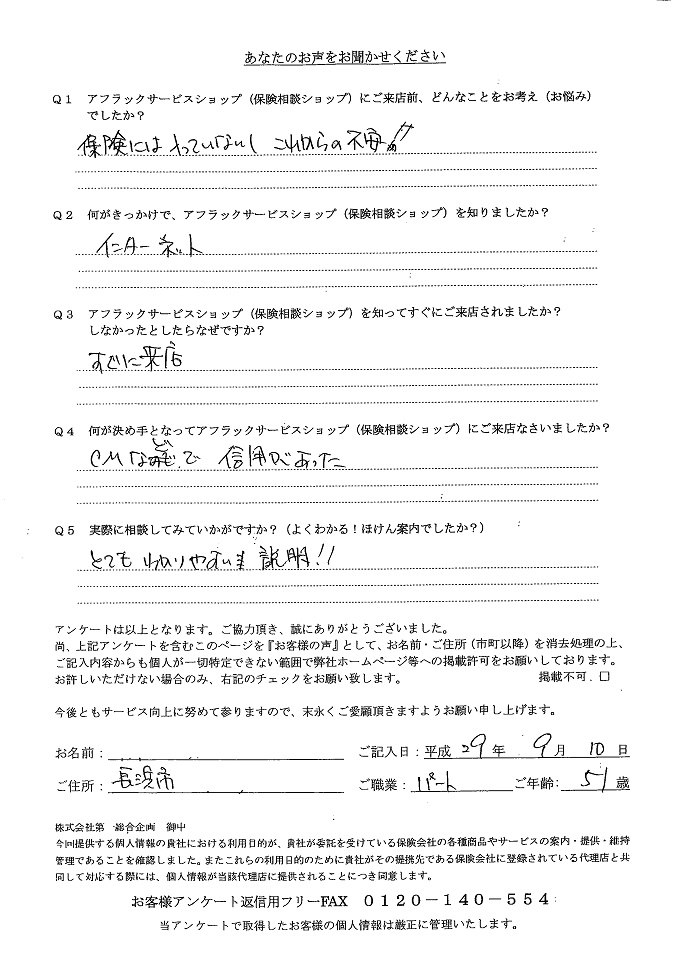 あなたのお声をお聞かせください
Q1 アフラックサービスショップ（保険相談ショップ）にご来店前、どんなことをお考え（お悩み）
でしたか？
保険には入っていないし これからの不安!!
Q2 何がきっかけで、アフラックサービスショップ（保険相談ショップ）を知りましたか？
インターネット
Q3 アフラックサービスショップ（保険相談ショップ）を知ってすぐにご来店されましたか？
しなかったとしたらなぜですか？
すぐに来店
Q4 何が決め手となってアフラックサービスショップ（保険相談ショップ）にご来店なさいましたか？
CMなどで 信用があった
Q5 実際に相談してみていかがですか？（よくわかる！ほけん案内でしたか？）
とても わかりやすい 説明!!
アンケートは以上となります。ご協力頂き、誠にありがとうございました。
尚、上記アンケートを含むこのページを『お客様の声』として、お名前・ご住所（市町以降）を消去処理の上、
ご記入内容からも個人が一切特定できない範囲で弊社ホームページ等への掲載許可をお願いしております。
お許しいただけない場合のみ、右記のチェックをお願い致します。 掲載不可.□
今後ともサービス向上に努めて参りますので、末永くご愛顧頂きますようお願い申し上げます。
お名前： ご記入日：平成 29 年 9 月 10 日
ご住所： 長浜市 ご職業： パート ご年齢： 51 歳
株式会社第一総合企画 御中
今回提供する個人情報の貴社における利用目的が、貴社が委託を受けている保険会社の各種商品やサービスの案内・提供・維持
管理であることを確認しました。またこれらの利用目的のために貴社がその提携先である保険会社に登録されている代理店と共
同して対応する際には、個人情報が当該代理店に提供されることにつき同意します。
お客様アンケート返信用フリーFAX 0120-140-554
当アンケートで取得したお客様の個人情報は厳正に管理いたします。